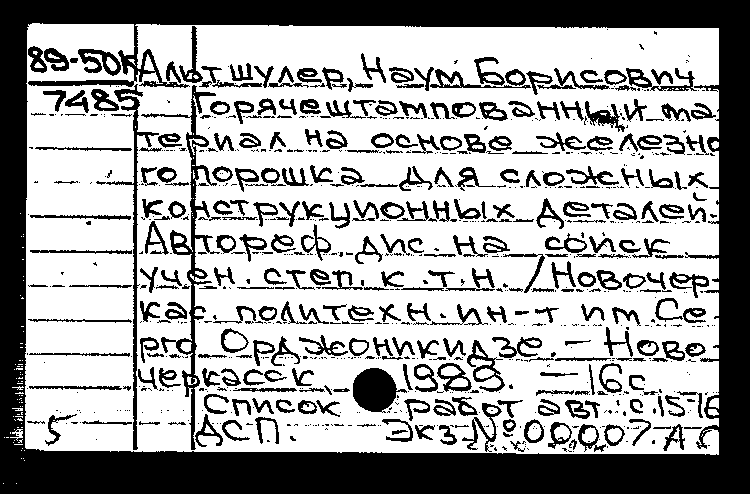 89-50к Альтшулер, Наум Борисович
7485 Горячештампованный ма
териал на основе железно
го порошка для сложных
конструкционных деталей.
Автореф. дис. на соиск
учен. степ. к.т.н. /Новочер-
кас. политехн. ин-т им. Се
рго Орджоникидзе. – Ново-
черкасск, 1989. – 16с
Список работ авт.: с.15-16
5 ДСП. Экз.№00007. АС